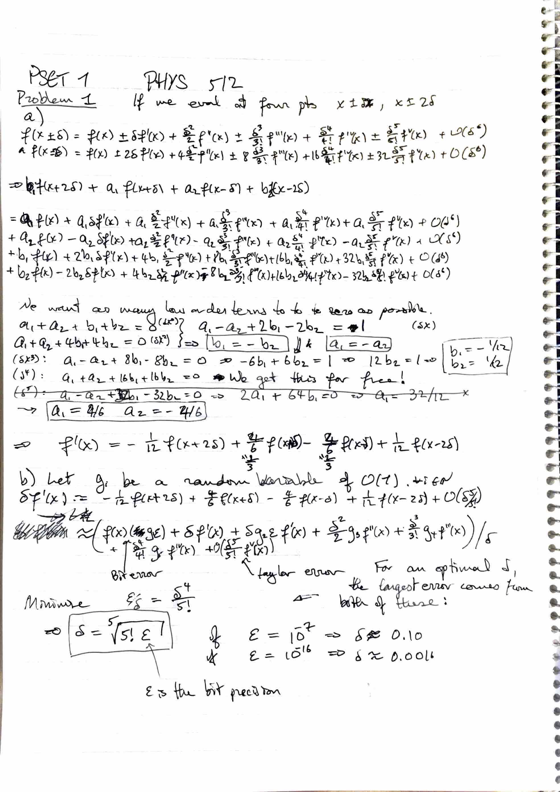 PSET 1 PHYS 512
Problem 1 If we eval at four pts x ± δ, x ± 2δ
a)
f(x ± δ) = f(x) ± δf'(x) + δ²/2 f''(x) ± δ³/3! f'''(x) + δ⁴/4! f⁴(x) ± δ⁵/5! f⁵(x) + O(δ⁶)
f(x ± 2δ) = f(x) ± 2δf'(x) + 4 δ²/2 f''(x) ± 8 δ³/3! f'''(x) + 16 δ⁴/4! f⁴(x) ± 32 δ⁵/5! f⁵(x) + O(δ⁶)
⇒ b₁f(x+2δ) + a₁f(x+δ) + a₂f(x-δ) + b₂f(x-2δ)
= a₁f(x) + a₁δf'(x) + a₁ δ²/2 f''(x) + a₁ δ³/3! f'''(x) + a₁ δ⁴/4! f⁴(x) + a₁ δ⁵/5! f⁵(x) + O(δ⁶)
+ a₂f(x) - a₂δf'(x) + a₂ δ²/2 f''(x) - a₂ δ³/3! f'''(x) + a₂ δ⁴/4! f⁴(x) - a₂ δ⁵/5! f⁵(x) + O(δ⁶)
+ b₁f(x) + 2b₁δf'(x) + 4b₁ δ²/2 f''(x) + 8b₁ δ³/3! f'''(x) + 16b₁ δ⁴/4! f⁴(x) + 32b₁ δ⁵/5! f⁵(x) + O(δ⁶)
+ b₂f(x) - 2b₂δf'(x) + 4b₂ δ²/2 f''(x) - 8b₂ δ³/3! f'''(x) + 16b₂ δ⁴/4! f⁴(x) - 32b₂ δ⁵/5! f⁵(x) + O(δ⁶)
We want as many low order terms to to to zero as possible.
a₁ + a₂ + b₁ + b₂ = 0 a₁ - a₂ + 2b₁ - 2b₂ = 1 (δx)
a₁ + a₂ + 4b₁ + 4b₂ = 0 (δx²) } ⇒ b₁ = -b₂ & a₁ = -a₂
(δx³): a₁ - a₂ + 8b₁ - 8b₂ = 0 ⇒ -6b₁ + 6b₂ = 1 ⇒ 12b₂ = 1 ⇒ b₁ = -1/12 b₂ = 1/12
(δ⁴): a₁ + a₂ + 16b₁ + 16b₂ = 0 We get this for free!
(δ⁵): a₁ - a₂ + 32b₁ - 32b₂ = 0 ⇒ 2a₁ + 64b₁ = 0 ⇒ a₁ = 32/12
→ a₁ = 4/6 a₂ = -4/6
⇒ f'(x) = -1/12 f(x+2δ) + 2/3 f(x+δ) - 2/3 f(x-δ) + 1/12 f(x-2δ)
b) Let gᵢ be a random variable of O(1). then
δf'(x) = -1/12 f(x+2δ) + 4/6 f(x+δ) - 4/6 f(x-δ) + 1/12 f(x-2δ) + O(δ⁵/5!)
≈ (f(x)(gε) + δf'(x) + δg₂εf'(x) + δ²/2 g₃f''(x) + δ³/3! g₄f'''(x)
+ δ⁴/4! g₅f⁴(x) + O(δ⁵/5! f⁵(x))/δ
Bit error taylor error For an optimal δ,
the largest error comes from
both of these:
Minimise ε/δ = δ⁴/5!
⇒ δ = ⁵√5! ε if ε = 10⁻⁷ ⇒ δ ≈ 0.10
if ε = 10⁻¹⁶ ⇒ δ ≈ 0.0016
ε is the bit precision